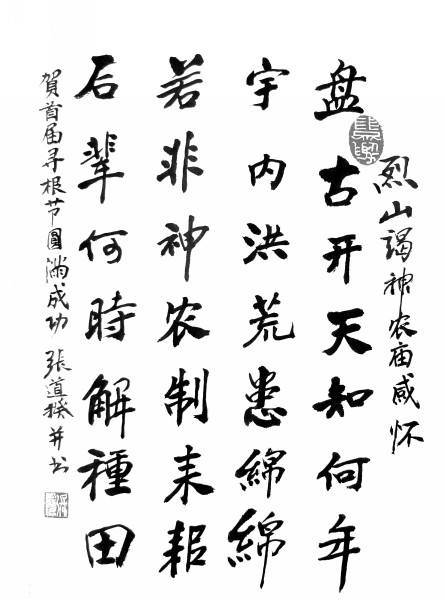 烈山謁神农庙感怀
盘古开天知何年
宇内洪荒患綿綿
若非神农制耒耜
后輩何時解種田
賀首届寻根节圓满成功 張道揆并书